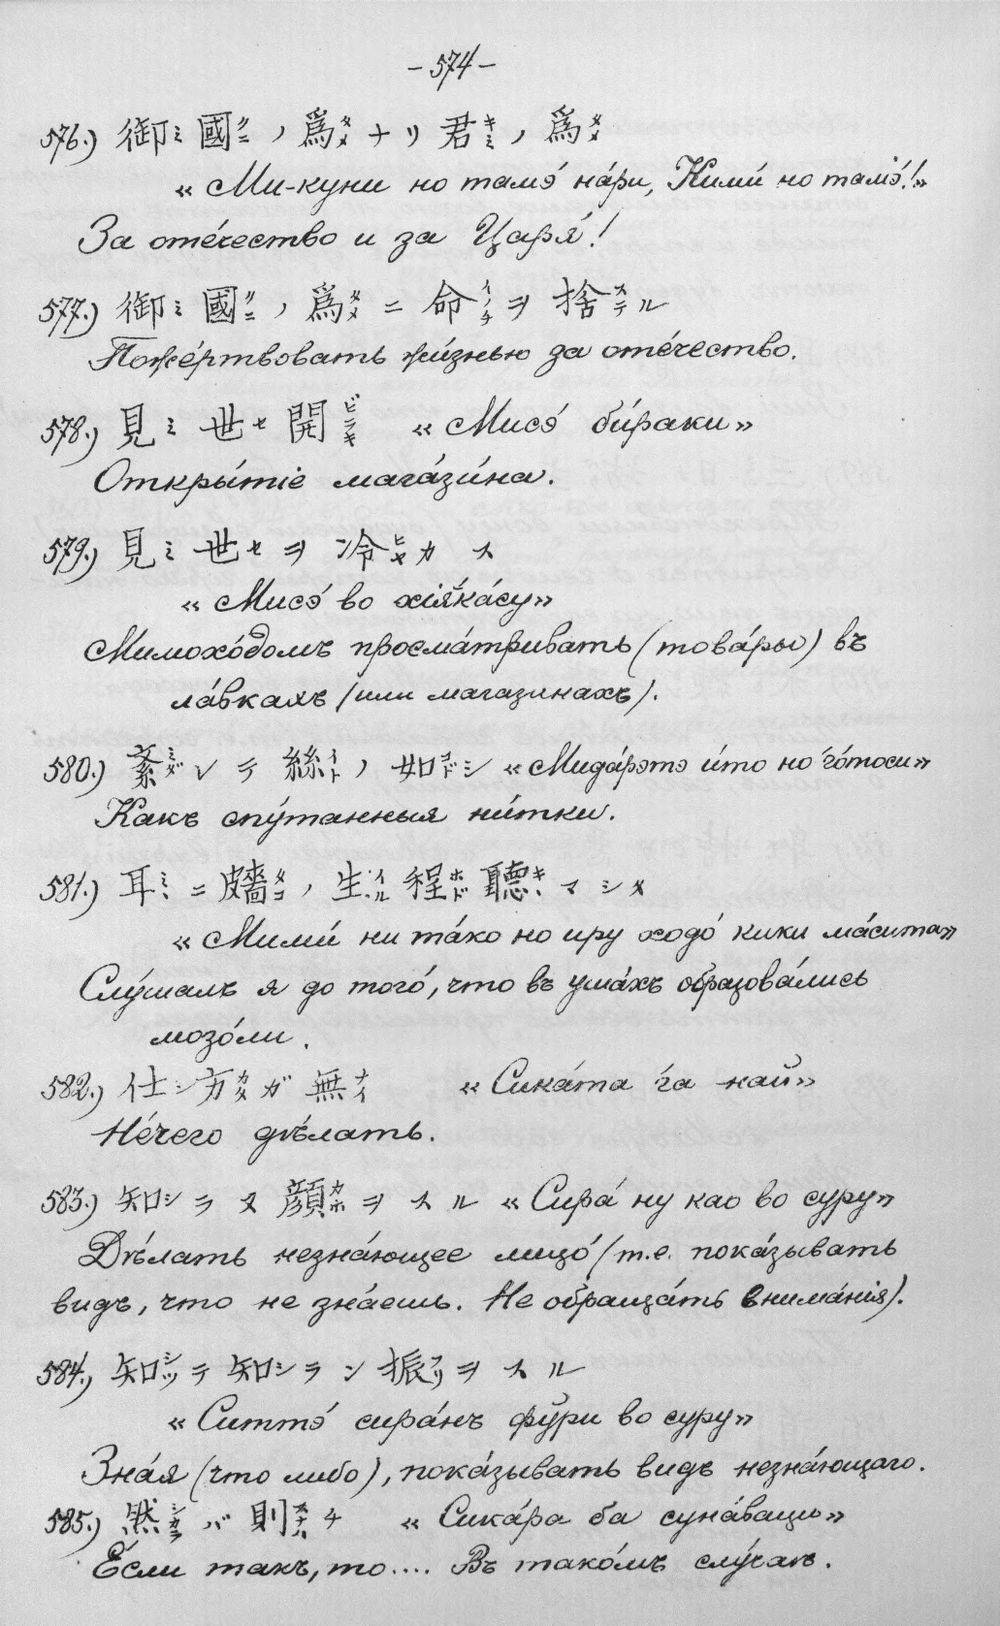 – 574 –
576.) 御ミ 國クニ ノ 爲タメ ナリ 君キミ ノ 爲タメ
« Ми-куни но тамэ́ на́ри, Кими́ но тамэ́!»
За оте́чество и за Царя́!
577.) 御ミ 國クニ ノ 爲タメ ニ 命イノチ ヲ 捨ステ ル
Поже́ртвовать жи́знью за оте́чество.
578.) 見ミ 世セ 開ビラキ « Мисэ́ би́раки»
Откры́тіе мага́зи́на.
579.) 見ミ 世セ ヲ 冷ヒヤ カ ス
« Мисэ́ во хія́ка́су»
Мимохо́домъ просма́тривать (това́ры) въ
ла́вкахъ (или магазинахъ).
580.) 紊ミダ レ テ 絲イト ノ 如ゴト シ « Мида́рэтэ и́то но го́тоси»
Какъ спу́танныя ни́тки.
581.) 耳ミミ ニ 胼タコ ノ 生イル 程ホド 聽キヽ マシタ
« Мими́ ни та́ко но иру ходо́ кики ма́сита»
Слу́шалъ я до того́, что въ уша́хъ образова́лись
мозо́ли.
582.) 仕シ 方カタ ガ 無ナイ « Сика́та га най»
Не́чего дѣ́лать.
583.) 知シ ラ ヌ 顔カホ ヲ ス ル « Сира́ ну као во суру»
Дѣ́лать незна́ющее лицо́ (т.е. пока́зывать
видъ, что не зна́ешь. Не обраща́ть внима́нія).
584.) 知シッ テ 知シ ラ ン 振フリ ヲ ス ル
« Ситтэ́ сира́нъ фу́ри во суру»
Зна́я (что либо), пока́зывать видъ незна́ющаго.
585.) 然シカラ バ 則スナハ チ « Сика́ра ба суна́ваци»
Е́сли такъ, то.... Въ тако́мъ слу́чаѣ.